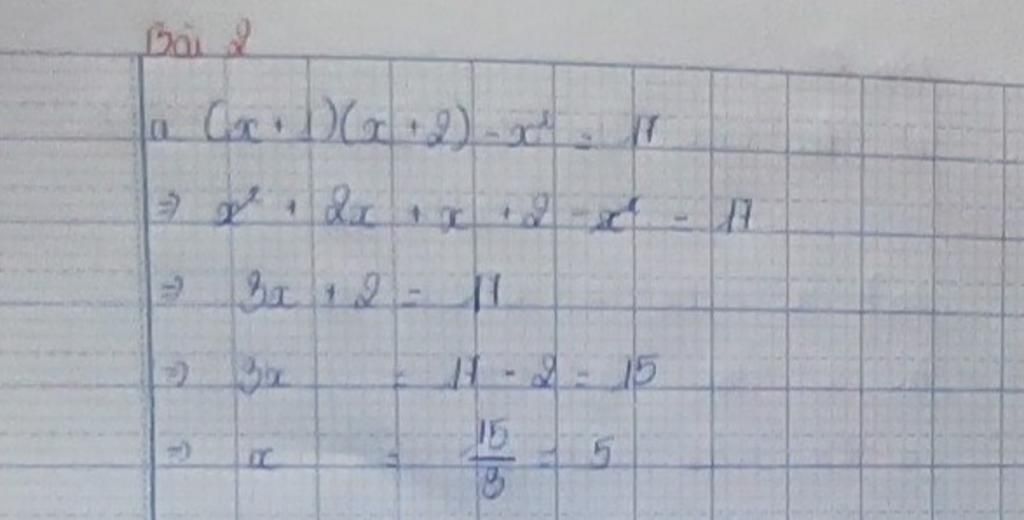 Bài 2
a (x + 1)(x + 2) - x² = 17
⇒ x² + 2x + x + 2 - x² = 17
⇒ 3x + 2 = 17
⇒ 3x = 17 - 2 = 15
⇒ x = 15/3 = 5